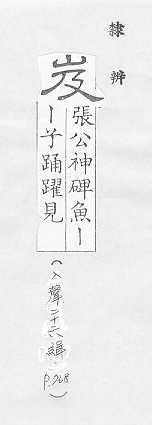 隸辨
岌
張公神碑魚｜
｜子踊躍見
(入聲二十六緝, p.768)